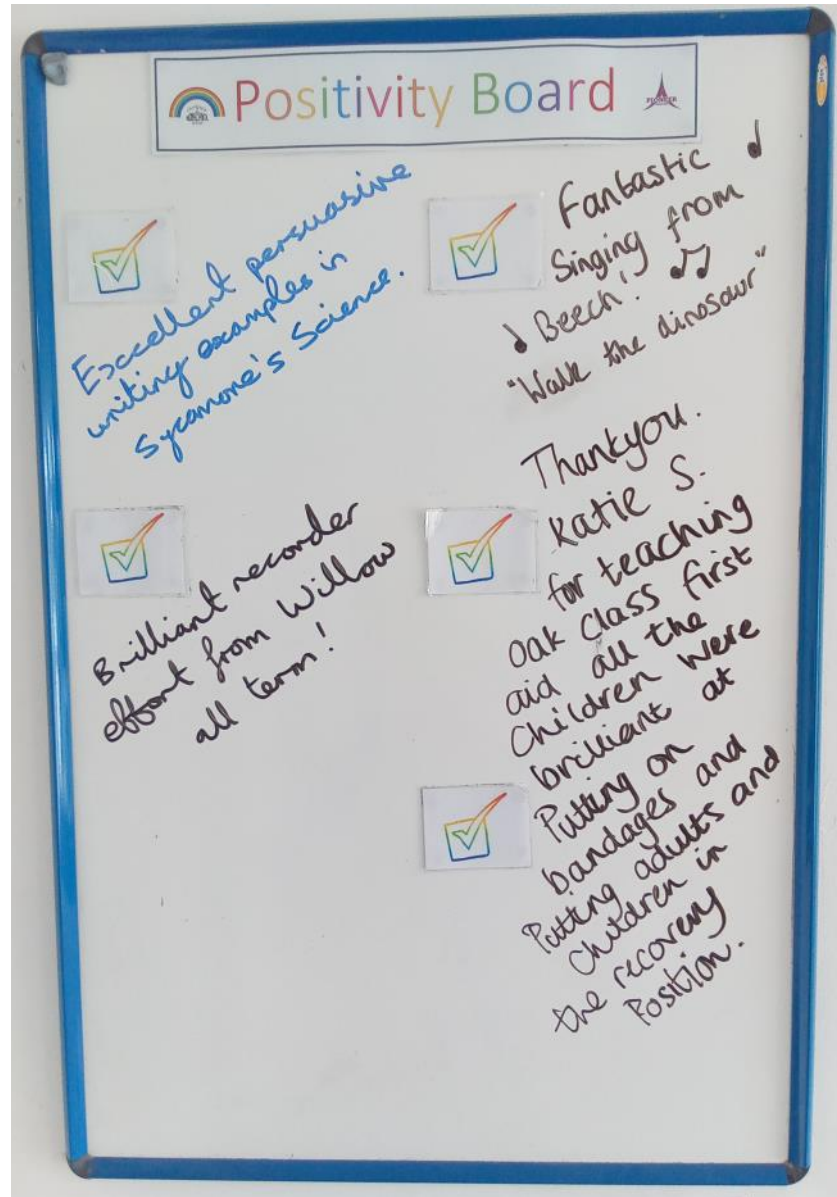 Positivity Board
PIONEER
Excellent persuasive
writing examples in
Sycamore's Science.
Brilliant recorder
effort from Willow
all term!
Fantastic
Singing from
Beech!
"Walk the dinosaur"
Thankyou.
Katie S.
for teaching
Oak Class first
aid all the
Children were
brilliant at
Putting on
bandages and
Putting adults and
Children in
the recovery
Position.